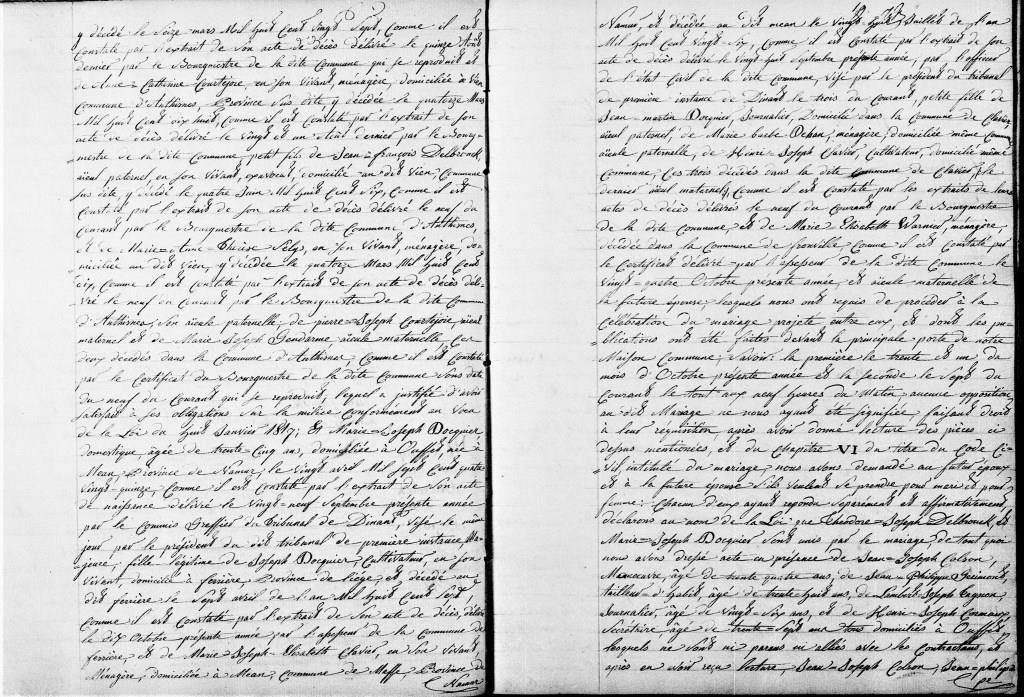 y décédé le Seize mars Mil huit Cent Vingt Sept, Comme il est
Constaté par l'extrait de son acte de décès délivré le quinze Août
dernier par le Bourgmestre de la dite Commune qui se reproduit et
de Catherine Courtejoie, en son Vivant, ménagère, domiciliée de Vien
Commune d'Anthisnes, Province Sus dite y décédée le quatorze Mars
Mil huit Cent dix huit, Comme il est Constaté par l'extrait de son
acte de décès délivré le Vingt et un dernier par le Bourg-
mestre de la dite Commune, petit fils de Jean=françois Delbrouck,
aïeul paternel, en son Vivant, domicilié au dit Vien, Commune
sus dite, y décédé le quatre Juin Mil huit Cent Six, Comme il est
Constaté par l'extrait de son acte de décès délivré le neuf du
Courant par le Bourgmestre de la dite Commune d'Anthisnes,
et de Marie=Anne Thérèse Selys, en son Vivant, ménagère, do-
miciliée au dit Vien, y décédée le quatorze Mars Mil huit Cent
dix, Comme il est Constaté par l'extrait de son acte de décès déli-
vré le neuf du Courant par le Bourgmestre de la dite Commune
d'Anthisnes, son aïeule paternelle, de pierre=Joseph Courtejoie, aïeul
maternel et de Marie Joseph Gendarme aïeule maternelle, Ces
deux décédés dans la Commune d'Anthisnes, Comme il est Constaté
par le Certificat du Bourgmestre de la dite Commune Sous date
du neuf du Courant qui se reproduit, lequel a justifié d'avoir
satisfait à ses obligations sur la milice Conformément au Vœu
de la Loi du huit Janvier 1817; Et Marie=Joseph Docquier
domestique, âgée de trente Cinq ans, domiciliée à Ouffet, née à
Mean, Province de Namur, le Vingt avril Mil Sept Cent quatre
Vingt-quinze, Comme il est Constaté par l'extrait de son acte
de naissance délivré le Vingt=neuf Septembre présente année
par le Commis Greffier du Tribunal de Dinant, Visé le même
jour par le président du dit tribunal de première instance, Ma-
jeure, fille légitime de Joseph Docquier, Cultivateur, en son
Vivant, domicilié à ferrière, Province de Liége et décédé au
dit ferrière le Sept avril de l'an Mil huit Cent Sept,
Comme il est Constaté par l'extrait de son acte de décès, délivré
le dix Octobre présente année par l'assesseur de la Commune de
ferrière, et de Marie=Joseph=Elisabeth Clavier, en son Vivant,
Ménagère, domiciliée à Mean, Commune de Maffe, Province de
Namur
Namur, et décédée au dit mean le Vingt huit Juillet de l'an
Mil huit Cent Vingt=Six, Comme il est Constaté par l'extrait de son
acte de décès délivré le Vingt huit Septembre présente année, par l'officier
de l'Etat Civil de la dite Commune, Visé par le président du tribunal
de première instance de Dinant le trois du Courant, petite fille de
Jean=martin Docquier, Journalier, Domicilié dans la Commune de Clavier,
aïeul paternel, de Marie barbe Dehan, ménagère, domiciliée même Commune
aïeule paternelle, de Henri=Joseph Clavier, Cultivateur, domicilié même
Commune, Ces trois décédés dans la dite Commune de Clavier, le
dernier aïeul maternel, Comme il est Constaté par les extraits de leurs
actes de décès délivrés le neuf du Courant par le Bourgmestre
de la dite Commune, et de Marie Elisabeth Warnier, ménagère,
décédée dans la Commune de Comme il est Constaté par
le Certificat délivré par l'assesseur de la dite Commune le
Vingt=quatre Octobre présente année, et aïeule maternelle de
la future épouse; lesquels nous ont requis de procéder à la
Célébration du mariage projeté entre eux, et dont les pu-
blications ont été faites devant la principale porte de notre
Maison Commune; Savoir: la première le trente et un du
mois d'Octobre présente année et la seconde le Sept du
Courant le tout aux neuf heures du Matin; aucune opposition
au dit Mariage ne nous ayant été signifiée, faisant droit
à leur réquisition, après avoir donné lecture des pièces ci
dessus mentionnées, et du Chapitre VI du titre du Code Ci-
vil, intitulé du mariage; nous avons demandé au futur époux
et à la future épouse s'ils veulent se prendre pour mari et pour
femme: Chacun d'eux ayant répondu Séparément et affirmativement,
déclarons au nom de la Loi que Théodore=Joseph Delbrouck et
Marie=Joseph Docquier sont unis par le mariage; de tout quoi
nous avons dressé acte en présence de Jean=Joseph Colson,
Manœuvre, âgé de trente quatre ans, de Jean Philippe
tailleur d'habit, âgé de trente huit ans, de Lambert Joseph
Journalier, âgé de Vingt=Six ans, et de Henri=Joseph
Secrétaire âgé de trente=Sept ans tous domiciliés à Ouffet
lesquels ne sont ni parens ni alliés avec les Contractans, et
après en avoir reçu lecture, Jean=Joseph Colson, Jean=philip-
pe